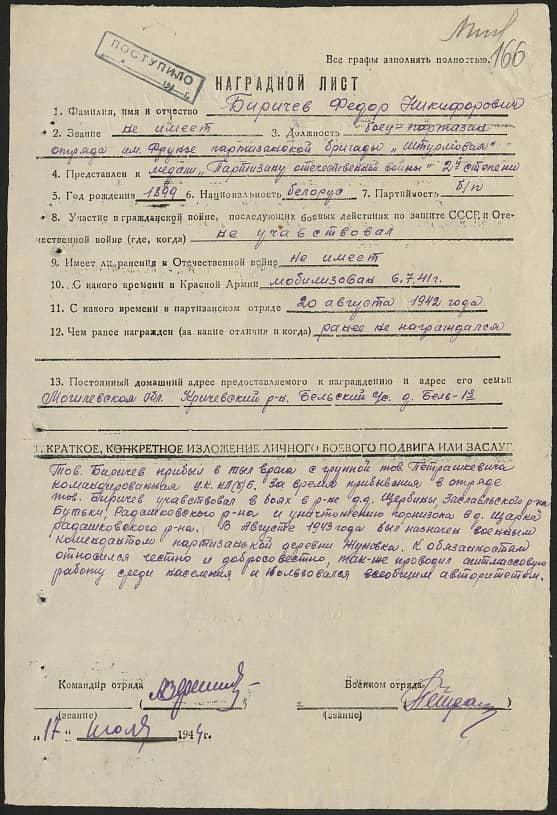 Все графы заполнять полностью.
166
ПОСТУПИЛО
НАГРАДНОЙ ЛИСТ
1. Фамилия, имя и отчество Биричев Федор Никифорович
2. Звание не имеет 3. Должность боец-партизан
отряда им. Фрунзе партизанской бригады „Штурмовая"
4. Представлен к медали „Партизану отечественной войны" 2й степени
5. Год рождения 1899 6. Национальность белорус 7. Партийность б/п
8. Участие в гражданской войне, последующих боевых действиях по защите СССР и Оте-
чественной войне (где, когда) не участвовал
9. Имеет ли ранения в Отечественной войне не имеет
10. С какого времени в Красной Армии мобилизован 6.7.41г.
11. С какого времени в партизанском отряде 20 августа 1942 года
12. Чем ранее награжден (за какие отличия и когда) ранее не награждался
13. Постоянный домашний адрес предоставляемого к награждению и адрес его семьи
Могилевская обл. Кричевский р-н. Бельский с/с. д. Бель-1я
1. КРАТКОЕ, КОНКРЕТНОЕ ИЗЛОЖЕНИЕ ЛИЧНОГО БОЕВОГО ПОДВИГА ИЛИ ЗАСЛУГ
Тов. Биричев прибыл в тыл врага с группой тов Петрашкевича
командированная Ц.К. КП(б)Б. За время прибивания в отряде
тов. Биричев учавствовал в боях в р-не д.д. Щербины Заславльского р-на
Бутьки, Радашковского р-на и уничтожению горнизона в д. Щарка
радашковского р-на. В Августе 1943 года был назначен военным
комендантом партизанькой деревни Жуновка. К обязанностям
относился честно и добросовестно, так-же проводил агитмассовую
работу среди населения и пользвовался всеобщим авторитетом.
Командир отряда Военком отряда
(звание) (звание)
„17" июля 1944г.